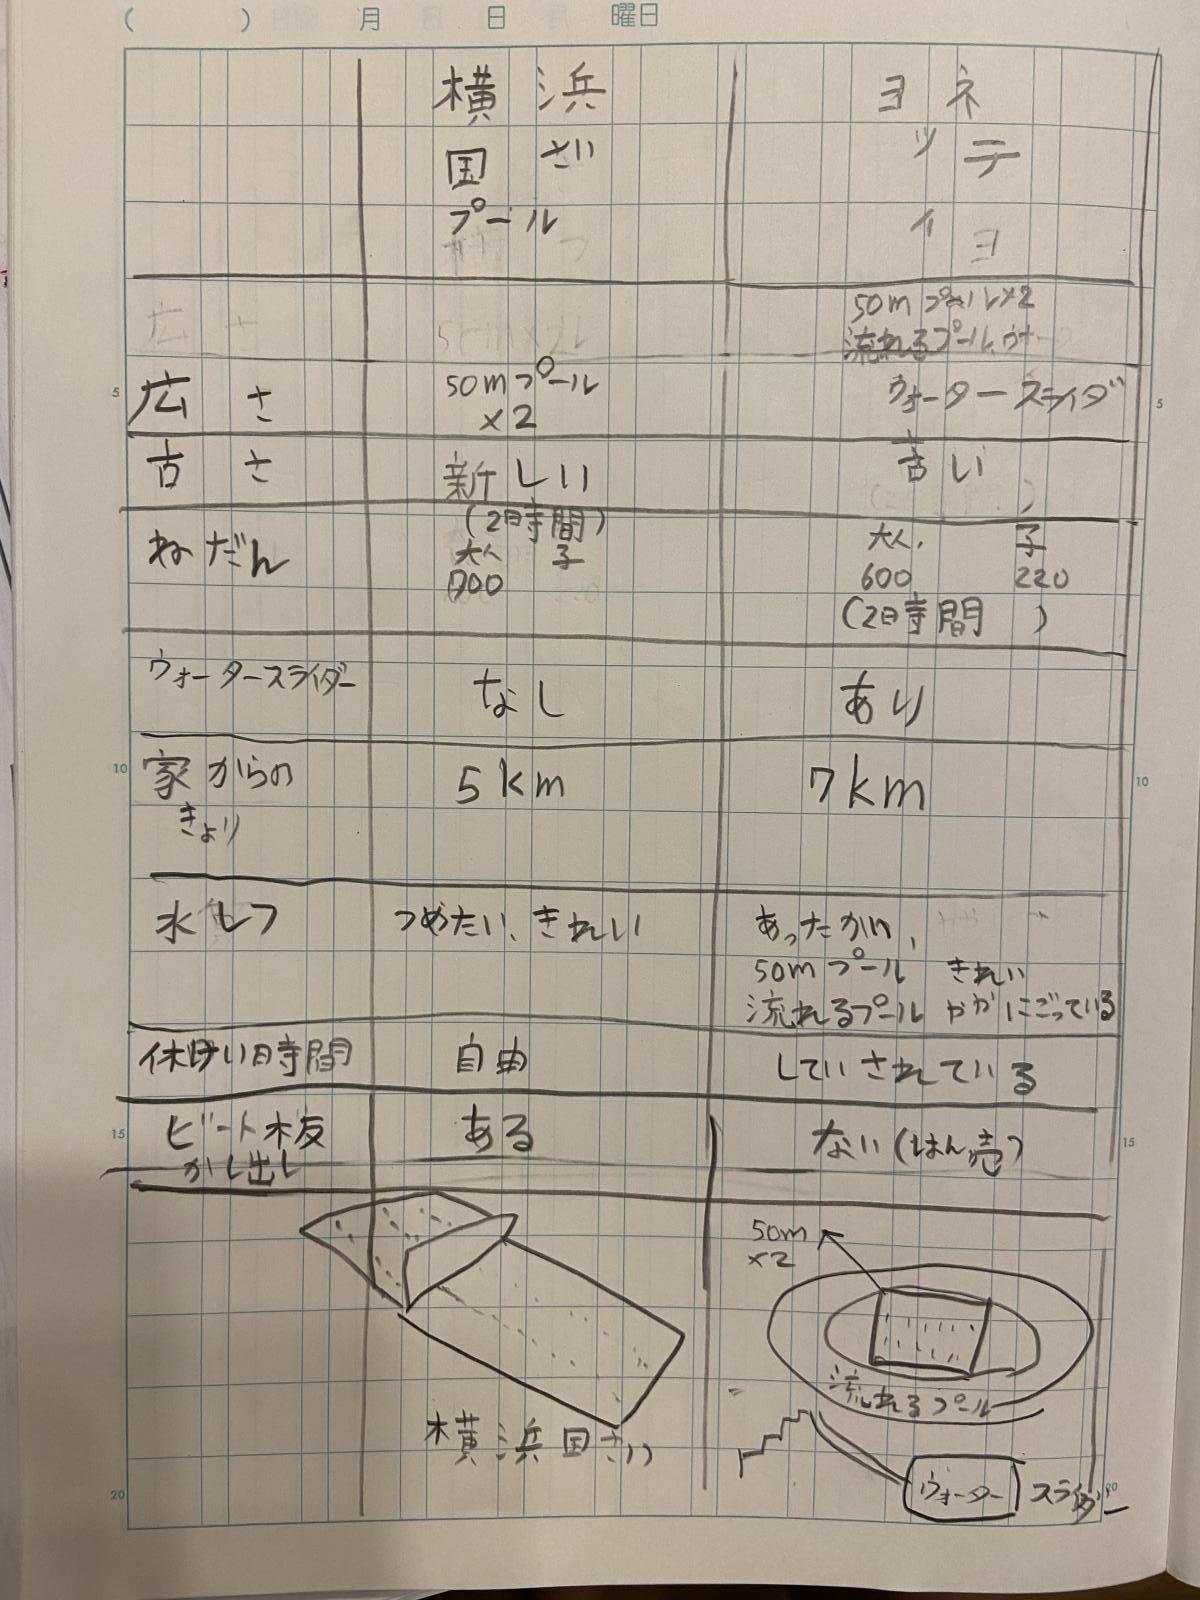 ( ) 月 日 曜日
横浜 ヨネ
国ざい ッテ
プール ィヨ
50mプール×2
流れるプール
5 広さ 50mプール ウォータースライダ 5
×2
古さ 新しい 古い
(2時間)
ねだん 大人 子 大人 子
700 600 220
(2時間 )
ウォータースライダー なし あり
10 家からの 5km 7km 10
きょり
水しつ つめたい、きれい あったかい、
50mプール きれい
流れるプール ややにごっている
休けい時間 自由 していされている
15 ビート板 ある ない(はん売) 15
かし出し
50m
×2
流れるプール
横浜国さい
20 ウォータースライダー 20